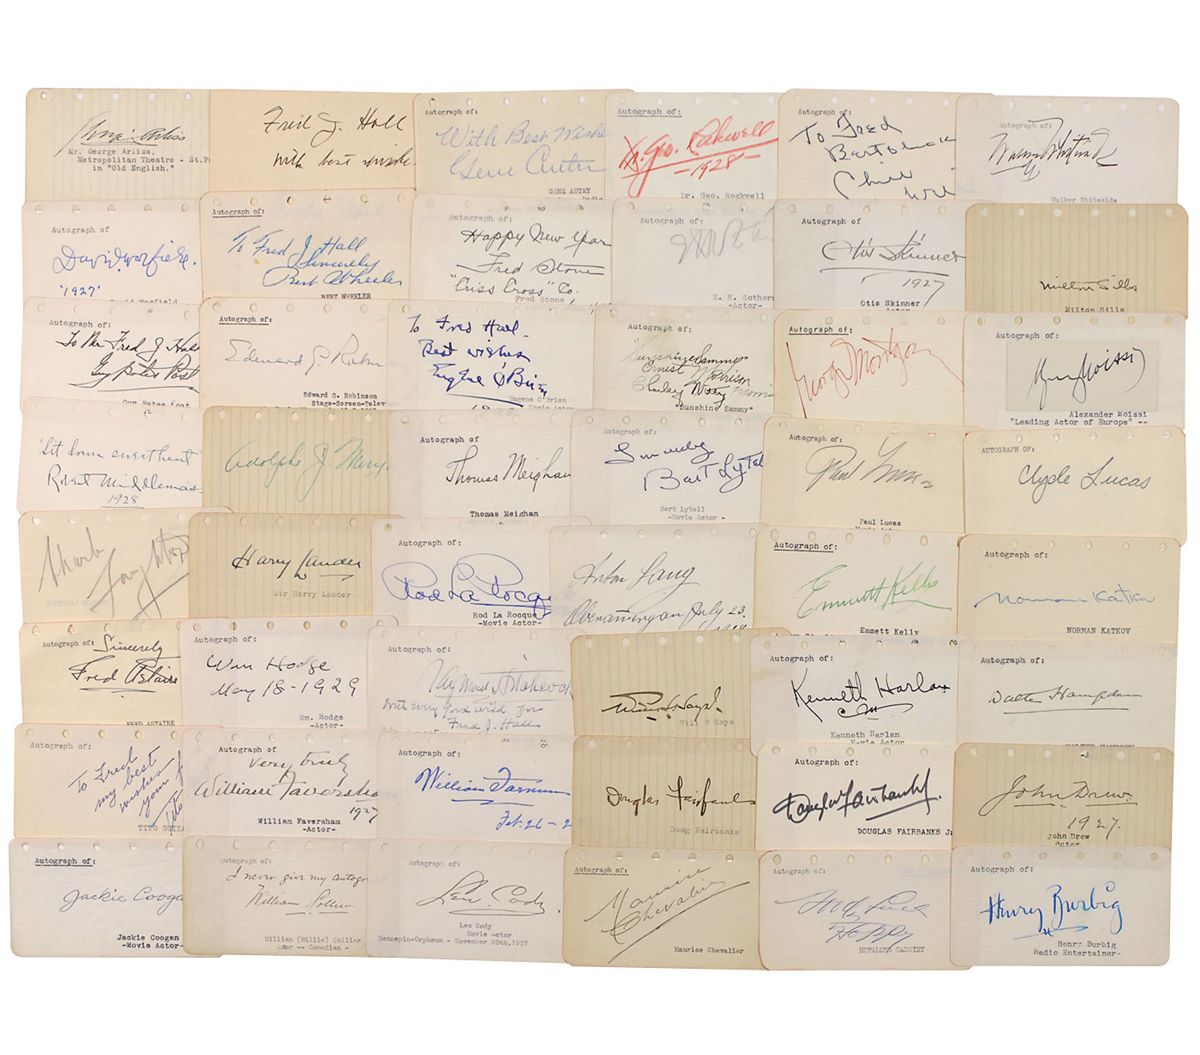 George Arliss
Mr. George Arliss,
Metropolitan Theatre - St.P
in "Old English."
Fred J. Hall
with best wishes
Autograph of:
With Best Wishes
Gene Autry
GENE AUTRY
Autograph of:
Dr. Geo. Rockwell
-1928-
Dr. Geo. Rockwell
Autograph of:
To Fred
Chill
Autograph of
Walker Whiteside
Walker Whiteside
Autograph of
David Warfield.
'1927'
David Warfield
Autograph of:
To Fred J. Hall
Sincerely
Bert Wheeler
BERT WHEELER
Happy New Year
Fred Stone
"Criss Cross" Co.
Fred Stone
Autograph of:
E. H. Sothern
-Actor-
Autograph of
Otis Skinner
1927
Otis Skinner
Milton Sills
Milton Sills
Autograph of:
To Mr Fred J. Hall
Guy Bates Post
Guy Bates Post
Autograph of:
Edward G. Robin
Edward G. Robinson
Stage-Screen-Telev
Autograph of:
To Fred Hall.
Best wishes
Eugene O'Brien
Eugene O'Brien
Movie Actor
Autograph of:
Sunshine Sammy
Ernest Morrison
"Sunshine Sammy"
Autograph of:
George Montgomery
Autograph of:
Alexander Moissi
"Leading Actor of Europe" --
'Sit down sweetheart'
Robert Middlemass
1928
Adolphe J. Menj
Autograph of
Thomas Meighan
Thomas Meighan
Autograph of:
Sincerely
Bart Lytell
Bert Lytell
-Movie Actor -
Autograph of:
Paul Lucas
Paul Lucas
Movie Actor
AUTOGRAPH OF:
Clyde Lucas
Charles
Laughton
Harry Lauder
Sir Harry Lauder
Autograph of:
Rod La Rocque
Rod La Rocque
-Movie Actor-
Autograph of:
Anton Lang
Oberammergau July 23.
Autograph of:
Emmett Kelly
Emmett Kelly
Autograph of:
Norman Katkov
NORMAN KATKOV
Autograph of:
Sincerely
Fred Astaire
FRED ASTAIRE
Autograph of:
Wm Hodge
May 18-1929
Wm. Hodge
-Actor-
Autograph of:
Raymond Hitchcock
With every good wish for
Fred J. Hall
Will H Hays.
Will H Hays
Autograph of:
Kenneth Harlan
Kenneth Harlan
Movie Actor
Autograph of:
Walter Hampden
WALTER HAMPDEN
Autograph of:
To Fred
my best
wishes
your
Tito
TITO GUIZA
Autograph of
Very truly
William Faversham
1927
William Faversham
-Actor-
Autograph of:
William Farnum
Feb-26-2
Douglas Fairbanks
Doug Fairbanks
Autograph of:
Douglas Fairbanks Jr.
DOUGLAS FAIRBANKS Jr
John Drew.
1927.
John Drew
Actor
Autograph of:
Jackie Coogan
Jackie Coogan
-Movie Actor-
Autograph of:
I never give my autogr
William Collier
William (Willie) Collier
Actor -- Comedian -
Autograph of:
Lew Cody.
Lew Cody
Movie Actor
Hennepin-Orpheum - November 20th,1927
Autograph of:
Maurice
Chevalier
Maurice Chevalier
Autograph of:
Good Luck
Hoppy
HOPALONG CASSIDY
Autograph of:
Henry Burbig
Henry Burbig
Radio Entertainer-